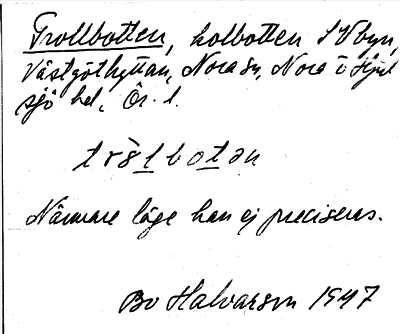 Trollbotten, kolbotten i V byn,
Västgöthyttan, Nora sn, Nora o Hjul
sjö hd, Ör. l.
trålbotən
Närmare läge kan ej preciseras.
Bo Halvarson 1947